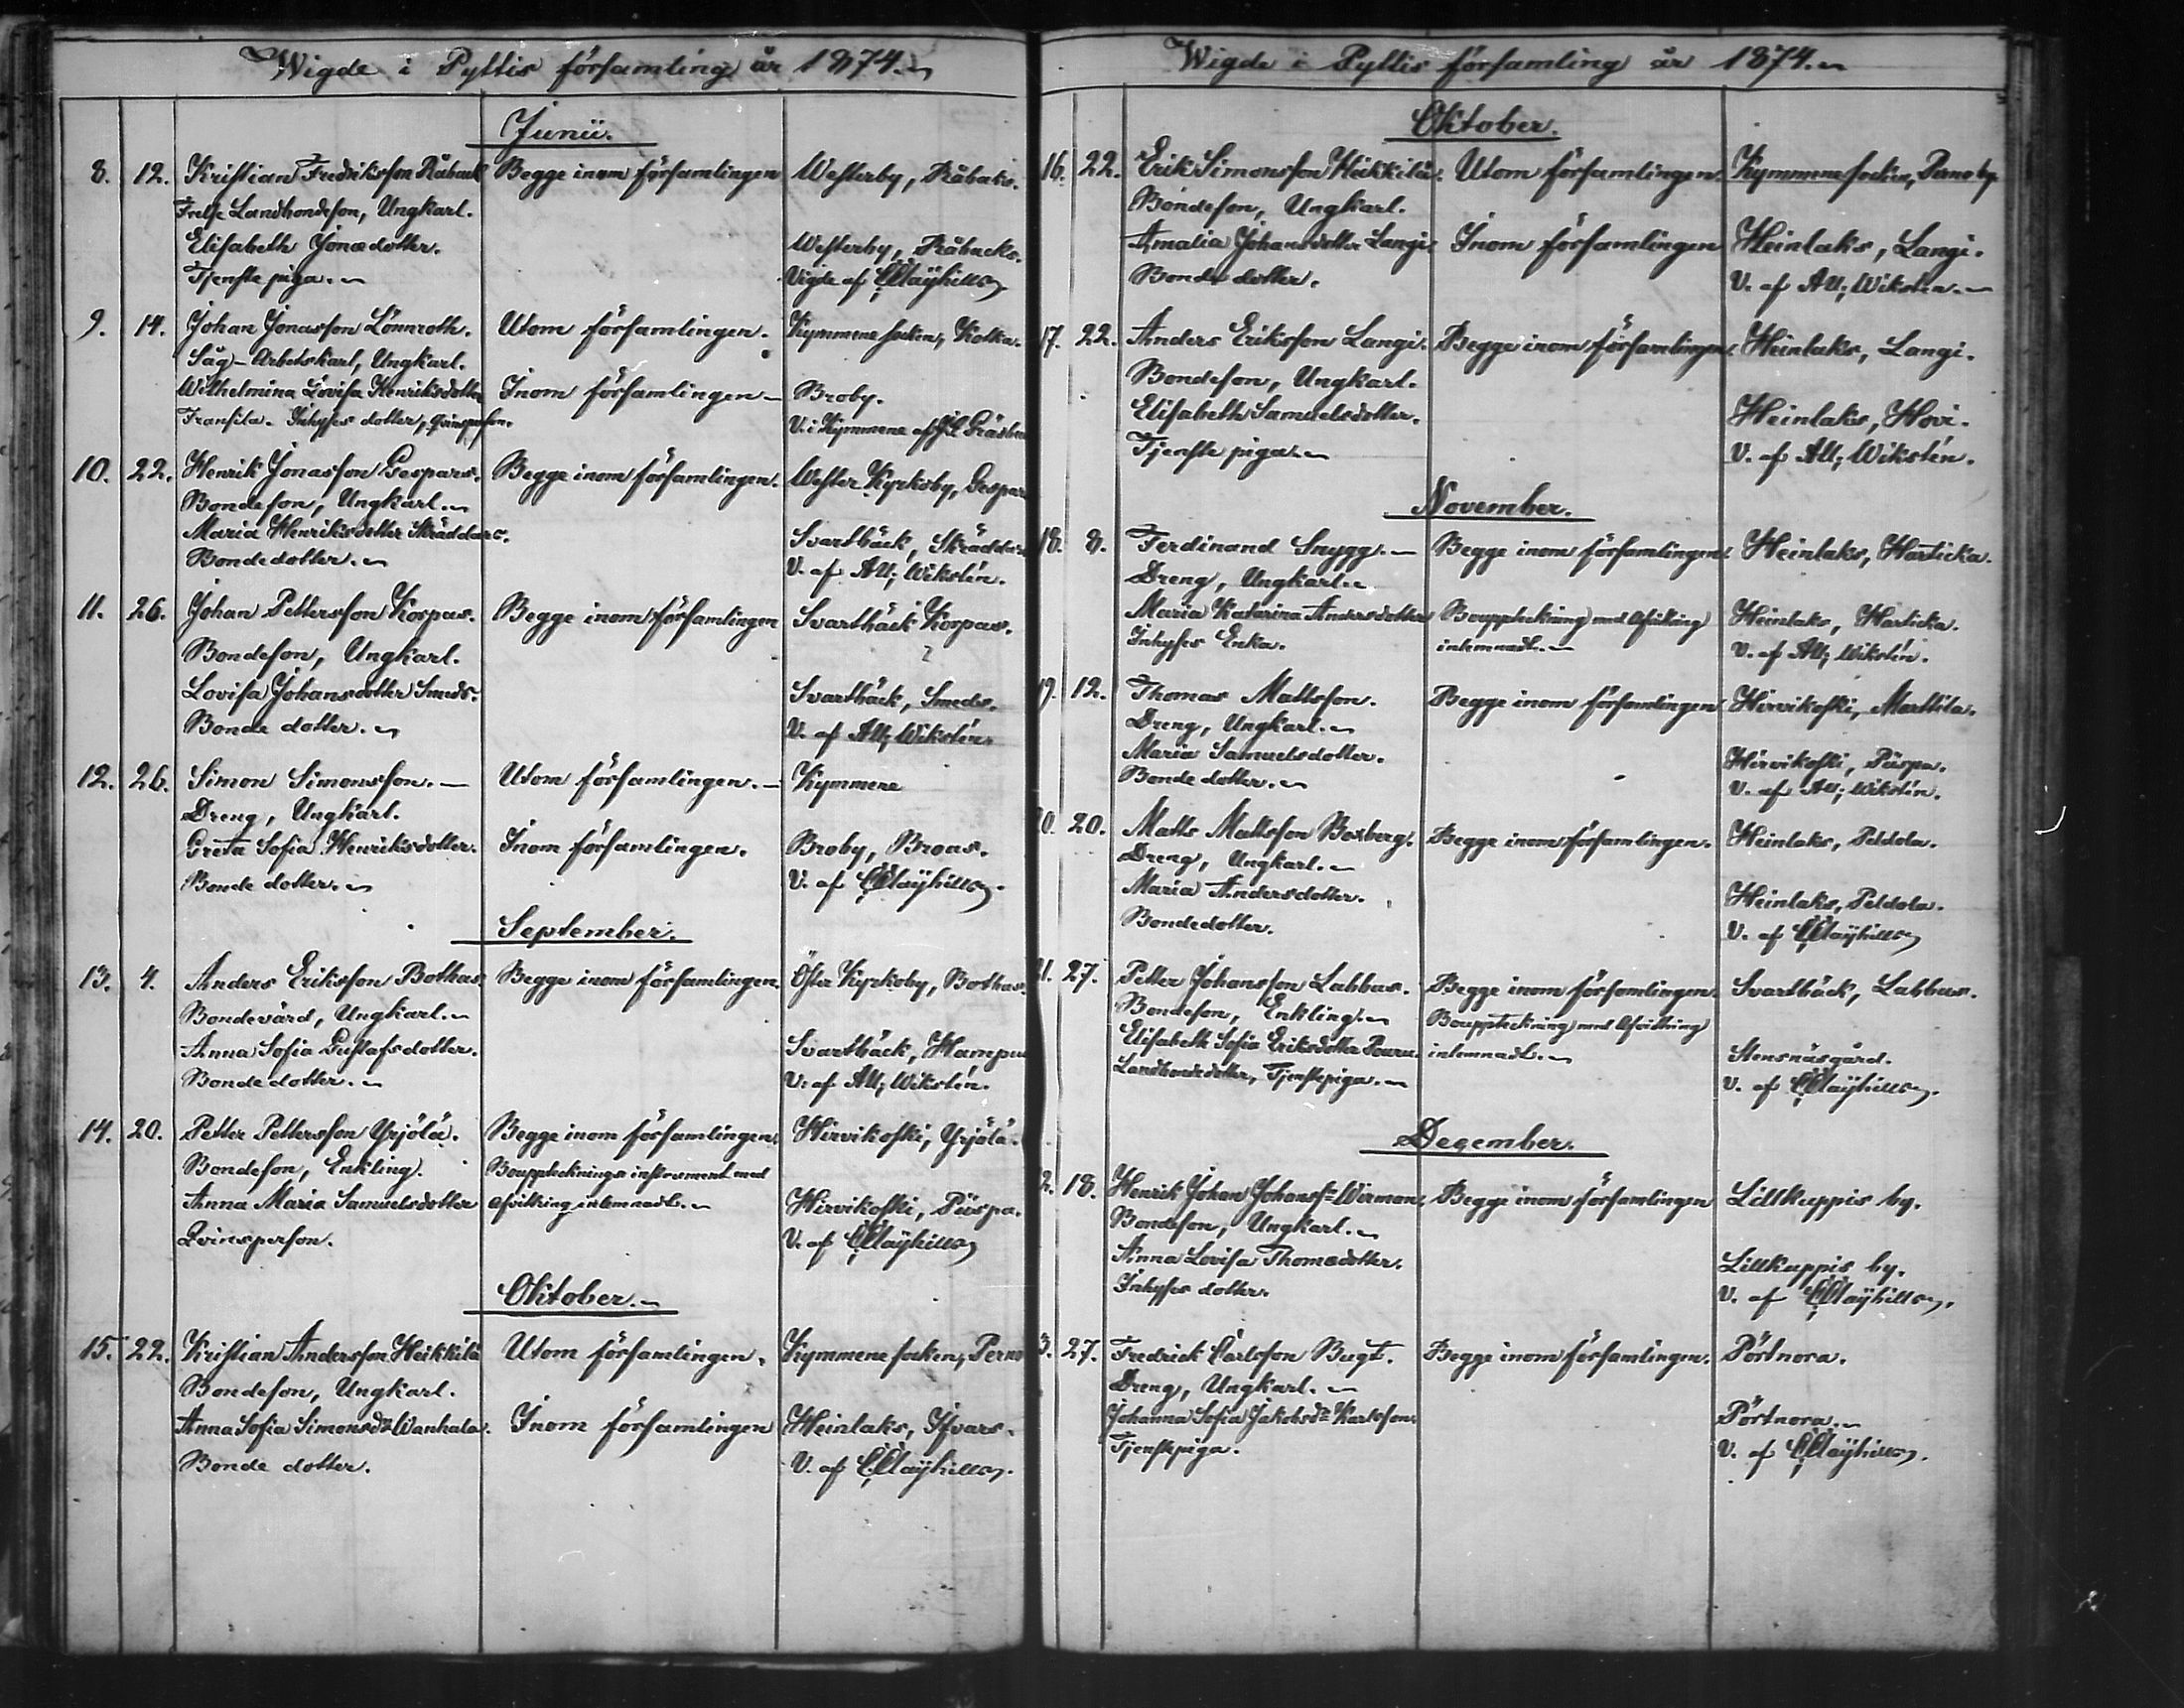 Wigde i Pyttis församling år 1874.
Junii.
8. 12. Kristian Fredriksson Råback Begge inom församlingen Westerby, Råbacks.
Frelse Landbondeson, Ungkarl.
Elisabeth Jonædotter. Westerby, Råbacks.
Tjenstepiga. Vigde af
9. 14. Johan Jonasson Lönnroth. Utom församlingen. Kymmene socken, Kotka.
Såg-Arbetskarl, Ungkarl.
Wilhelmina Lovisa Henriksdotter Inom församlingen Broby.
Inhyses dotter, Qvinsperson. V. i Kymmene af
10. 22. Henrik Jonasson Gespars. Begge inom församlingen. Wester Kyrkoby, Gespar
Bondeson, Ungkarl.
Maria Henriksdotter Skräddars. Svartbäck, Skräddar
Bondedotter. V. af Alb; Wikstén.
11. 26. Johan Pettersson Korpas. Begge inom församlingen Svartbäck Korpas.
Bondeson, Ungkarl.
Lovisa Johansdotter Smeds. Svartbäck, Smeds.
Bonde dotter. V. af Alb; Wikstén.
12. 26. Simon Simonsson. Utom församlingen. Kymmene
Dreng, Ungkarl.
Greta Sofia Henriksdotter. Inom församlingen. Broby, Broas.
Bonde dotter. V. af
September.
13. 4. Anders Eriksson Bothas. Begge inom församlingen. Öster Kyrkoby, Bothas.
Bondevärd, Ungkarl.
Anna Sofia Gustafsdotter. Svartbäck, Hampus
Bondedotter. V. af Alb; Wikstén.
14. 20. Petter Pettersson Yrjölä. Begge inom församlingen. Hirvikoski, Yrjölä.
Bondeson, Enkling. Bouppteckningsinstrument med
Anna Maria Samuelsdotter afvittring inlemnadt. Hirvikoski, Piispa.
Qvinsperson. V. af
Oktober.
15. 22. Kristian Andersson Heikkilä Utom församlingen. Kymmene socken, Perno
Bondeson, Ungkarl.
Anna Sofia Simonsdr Wanhala. Inom församlingen Heinlaks, Ifvars.
Bonde dotter. V. af
Wigde i Pyttis församling år 1874.
Oktober.
16. 22. Erik Simonsson Heikkilä. Utom församlingen. Kymmene socken, Perno by.
Bondeson, Ungkarl.
Amalia Johansdotter Langi. Inom församlingen Heinlaks, Langi.
Bonde dotter. V. af Alb; Wikstén.
17. 22. Anders Eriksson Langi. Begge inom församlingen. Heinlaks, Langi.
Bondeson, Ungkarl.
Elisabeth Samuelsdotter. Heinlaks, Hovi.
Tjenste piga. V. af Alb; Wikstén.
November.
18. 8. Ferdinand Snygg. Begge inom församlingen. Heinlaks, Harticka.
Dreng, Ungkarl.
Maria Katarina Andersdotter Bouppteckning med Afvittring Heinlaks, Harticka.
Inhyses Enka. inlemnadt. V. af Alb; Wikstén.
9. 12. Thomas Mattsson. Begge inom församlingen Hirvikoski, Marttila.
Dreng, Ungkarl.
Maria Samuelsdotter. Hirvikoski, Piispa.
Bonde dotter. V. af Alb; Wikstén.
0. 20. Matts Mattsson Boxberg. Begge inom församlingen. Heinlaks, Peldola.
Dreng, Ungkarl.
Maria Andersdotter. Heinlaks, Peldola.
Bondedotter. V. af
1. 27. Petter Johansson Labbas. Begge inom församlingen. Svartbäck, Labbas.
Bondeson, Enkling. Bouppteckning med Afvittring
Elisabeth Sofia Eriksdotter inlemnadt. Stensnäsgård.
Landbondedotter, Tjenstepiga. V. af
December.
2. 18. Henrik Johan Johanss: Wirman. Begge inom församlingen Lillkuppis by.
Bondeson, Ungkarl.
Anna Lovisa Thomædotter. Lillkuppis by.
Inhyses dotter. V. af
3. 27. Fredrick Carlsson Bugt. Begge inom församlingen. Pörtnora.
Dreng, Ungkarl.
Johanna Sofia Jakobsdr Karlsson. Pörtnora.
Tjenstepiga. V. af